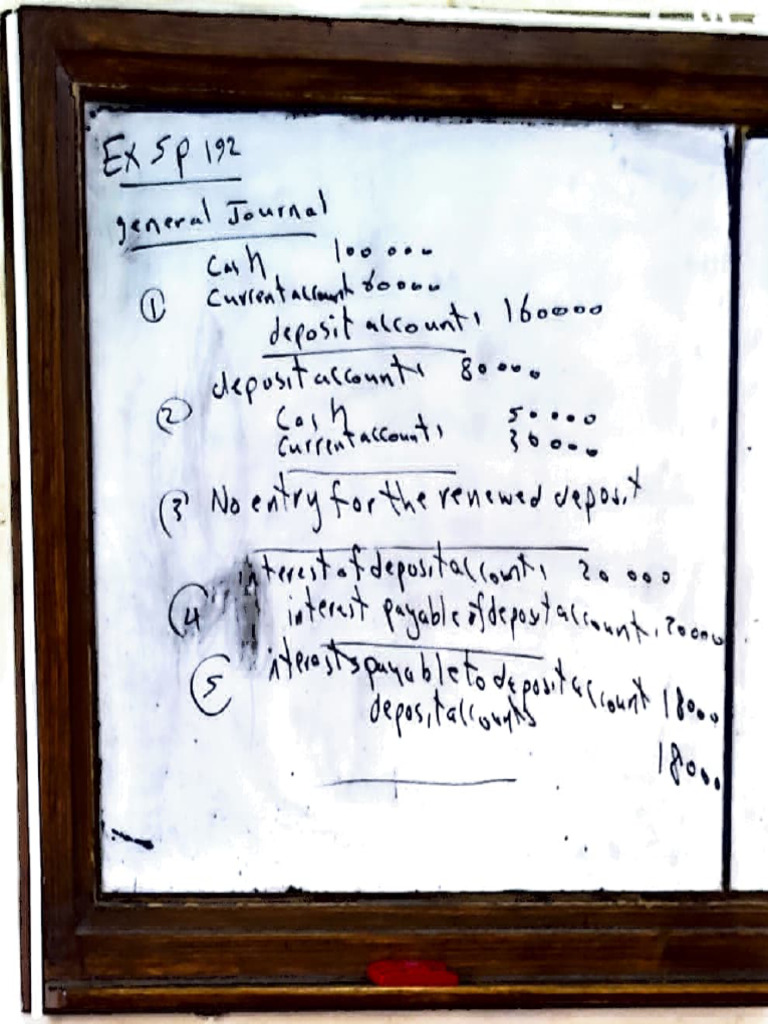 Ex 5 P 192
general Journal
Cash 100000
① Current account 60000
deposit accounts 160000
deposit accounts 80000
② Cash 50000
Current accounts 30000
③ No entry for the renewed deposit
interest of deposit accounts 20000
④ interest payable of deposit accounts 20000
⑤ interests payable to deposit account 18000
deposit accounts
18000